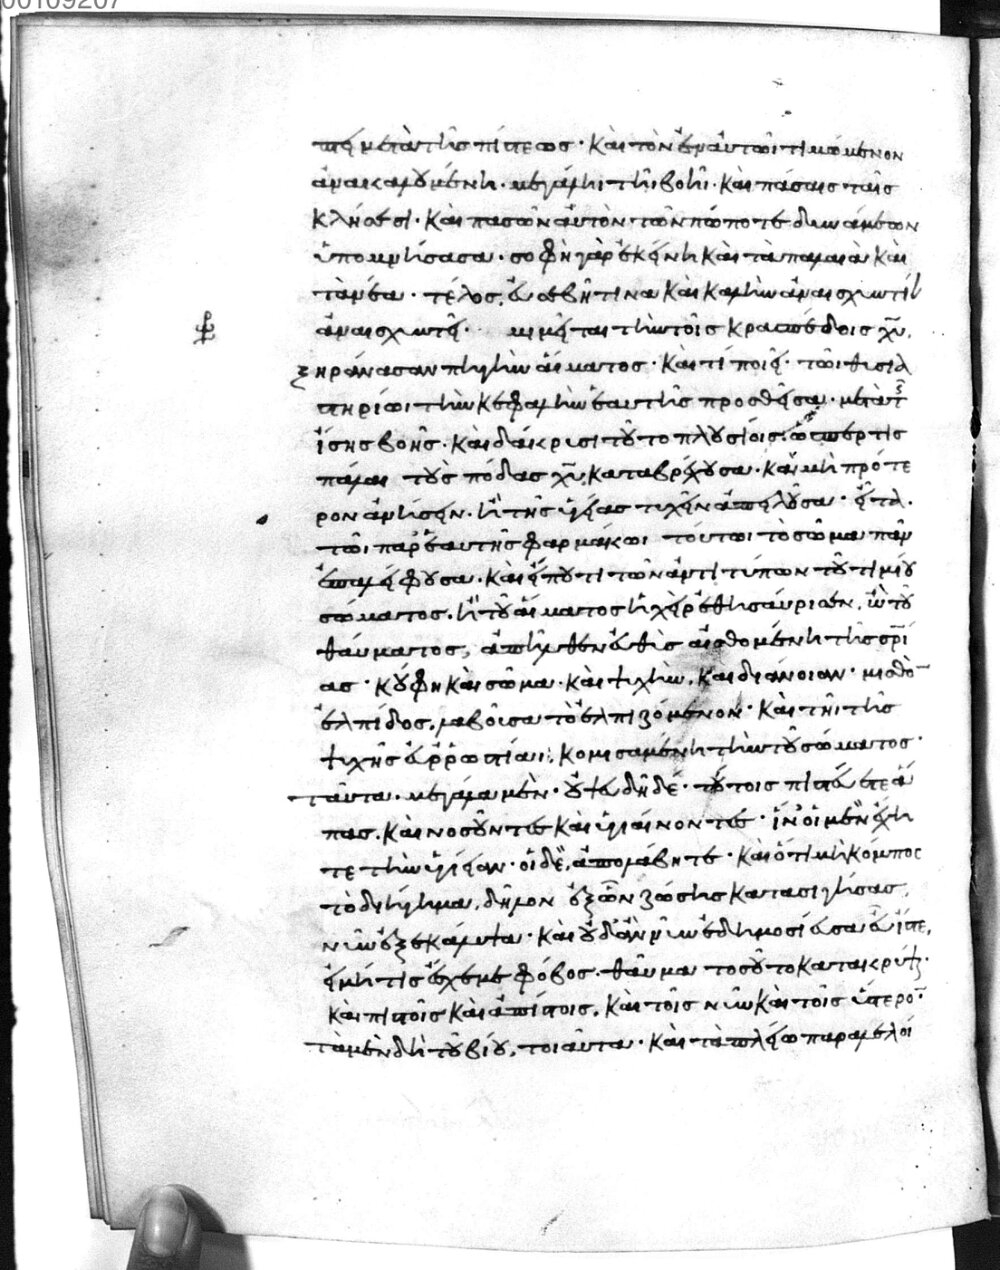 00109207
πτει μετὰ τῆς πίστεως· καὶ τὸν ἐπ' αὐτῶι τιμώμενον
ἀνακαλουμένη· μεγάληι τῆι βοῆι· καὶ πάσαις ταῖς
κλήσεσι· καὶ πασῶν αὐτὸν τῶν πώποτε δυνάμεων
ὑπομνήσασα· σοφὴ γὰρ ἐκείνη καὶ τὰ παλαιὰ καὶ
τὰ νέα· τέλος, εὐσεβῆ τινα καὶ καλὴν ἀναισχυντίαν
ἀναισχυντεῖ· μιμεῖται τὴν τοῖς κρασπέδοις χυ,
ξηράνασαν πηγὴν αἵματος· καὶ τί ποιεῖ· τῶι θυσια
στηρίωι τὴν κεφαλὴν ἑαυτῆς προσθεῖσα· μετὰ τ
ἴσης βοῆς· καὶ δάκρυσι τοῦτο πλουσίοις, ὥσπερ τις
πάλαι τοὺς πόδας χυ καταβρέχουσα· καὶ μὴ πρότε
ρον ἀνήσειν· ἢ τῆς ὑγείας τυχεῖν ἀπειλοῦσα· εἶτα
τῶι παρ' ἑαυτῆς φαρμάκωι τούτωι τὸ σῶμα πᾶν
ἐπαλείφουσα· καὶ εἴ πού τι τῶν ἀντιτύπων τοῦ τιμίου
σώματος, ἢ τοῦ αἵματος ἡ χεὶρ ἐθησαύρισεν, ὢ τοῦ
θαύματος, ἀπῆλθεν εὐθὺς αἰσθομένη τῆς σρί
ας· κούφη καὶ σῶμα· καὶ ψυχὴν, καὶ διάνοιαν· μισθὸ
ἐλπίδος, λαβοῦσα τὸ ἐλπιζόμενον· καὶ τῆι τῆς
ψυχῆς εὐρρωστίαι, κομισαμένη τὴν τοῦ σώματος·
ταῦτα μεγάλα μὲν· οὐ ψευδῆ δέ· τούτοις πιστεύετε ἅ
πας, καὶ νοσοῦντες καὶ ὑγιαίνοντες· ἵν' οἱ μὲν ἔχη
τε τὴν ὑγίειαν· οἱ δὲ, ἀπολάβητε· καὶ ὅτι μὴ κόμπος
τὸ διήγημα, δῆλον ἐξ ὧν ζώσης κατασιγήσας,
νῦν ἐξεκάλυψα· καὶ οὐδ' ἂν νῦν ἐδημοσίευσα εὖ ἴστε,
εἰ μή τις ἔσχε με φόβος· θαῦμα τοσοῦτο κατακρύψ
καὶ πιστοῖς καὶ ἀπίστοις, καὶ τοῖς νῦν καὶ τοῖς ὕστερο
τὰ μὲν δὴ τοῦ βίου, τοιαῦτα· καὶ τὰ πλείω παραλελοί